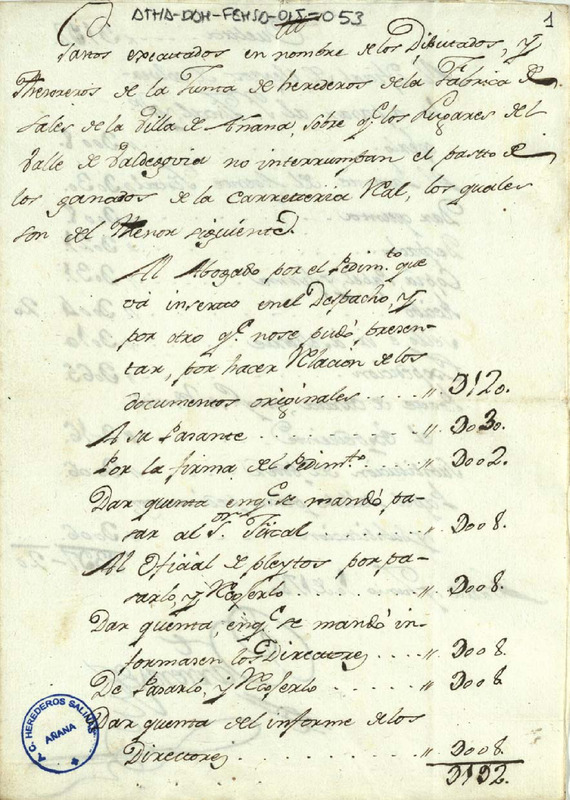 ATHA-DAH-FEHSO-015-053
1
Gastos executados en nombre de los Diputados, y
Thesoreros de la Junta de herederos de la Fabrica de
Sales de la Villa de Añana, sobre q.e los Lugares del
Valle de Valdegovia no interrumpan el pasto de
los ganados de la Carreteria Real, los quales
son del thenor siguiente.
Al Abogado por el Pedim.to que
vá inserto en el Despacho, y
por otro q.e no se pudo presen-
tar, por hacer Relacion de los
documentos originales . . . . " D120.
A su Pasante . . . . . . . " D030.
Por la firma del Pedim.to . . . " D002.
Dar quenta en q.e se mandó pa-
sar al S.or Fiscal . . . . " D008.
Al Oficial de pleytos por pa-
sarlo, y Recoxerlo . . . . . " D008.
Dar quenta, en q.e se mandó in-
formasen los Directores . . . " D008.
De Pasarlo, y Recoxerlo . . . . . " D008
Dar quenta del informe de los
Directores . . . . . . . " D008.
D192.
A. C. HEREDEROS SALINAS
AÑANA